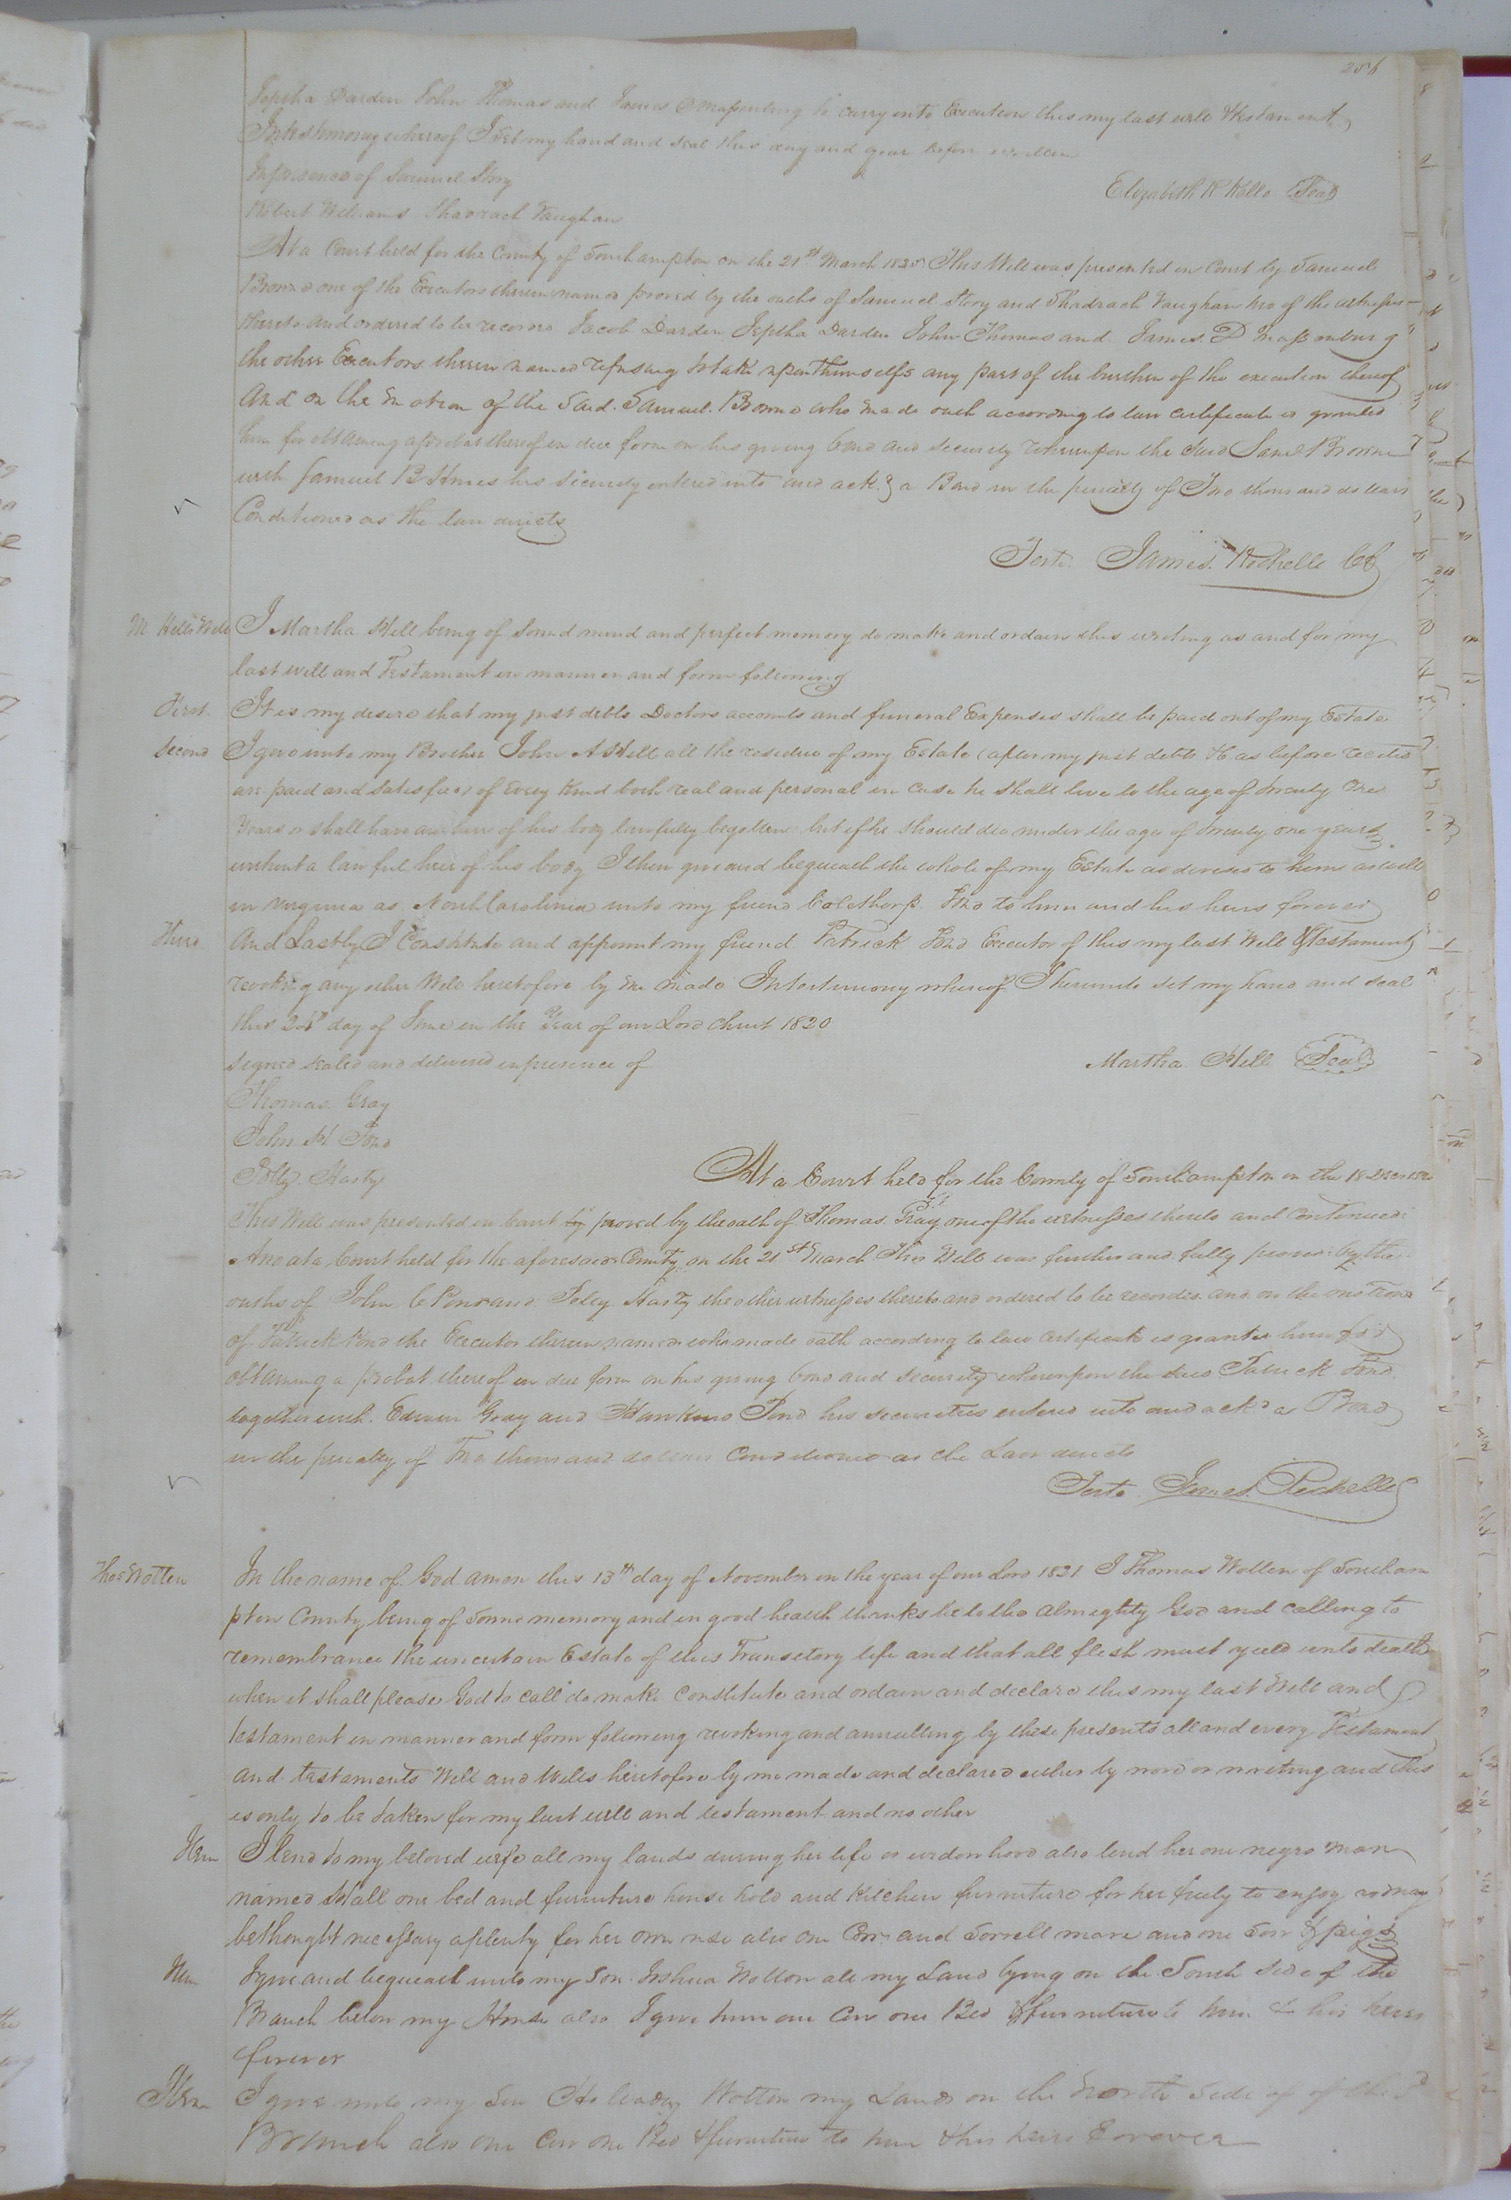 Jeptha Darden John Thomas and James D Massenburg to carry into Execution this my last will & testament
In testimony whereof I set my hand and seal this day and year before written
In presence of Samuel Story
Elizabeth R Kello Seal
Robert Williams Shadrach Vaughan
At a Court held for the County of Southampton on the 21st March 1825 This Will was presented in Court by Samuel
Browne one of the Executors therein named proved by the oaths of Samuel Story and Shadrach Vaughan two of the witnesses
thereto and ordered to be recorded Jacob Darden Jeptha Darden John Thomas and James D Massenburg
the other Executors therein named refusing to take upon themselfs any part of the burthen of the execution thereof
And on the motion of the said Samuel Browne who made oath according to law certificate is granted
him for obtaining a probat thereof in due form on his giving bond and security whereupon the said Saml Browne
with Samuel B Hines his security entered into and ackd a Bond in the penalty of Two thousand dollars
Conditioned as the law directs
Teste James Rochelle CC
M Hills Will I Martha Hill being of sound mind and perfect memory do make and ordain this writing as and for my
last will and Testament in manner and form following
First It is my desire that my just debts Doctors accounts and funeral Expenses shall be paid out of my Estate
Second I give unto my Brother John A Hill all the residue of my Estate (after my just debts &c as before recited
are paid and satisfied) of every kind both real and personal in case he shall live to the age of twenty one
years or shall have an heir of his body lawfully begotten but if he should die under the age of twenty one years
without a lawful heir of his body I then give and bequeath the whole of my Estate as devised to him as well
in Virginia as North Carolina unto my friend Colethorp to him and his heirs forever
Third And Lastly I Constitute and appoint my friend Patrick Pond Executor of this my last Will & Testament
revoking any other Will heretofore by me made In testimony whereof I hereunto set my hand and seal
this day of June in the Year of our Lord Christ 1820
Signed sealed and delivered in presence of
Martha Hill Seal
Thomas Gray
John Pond
Polly Hasty
At a Court held for the County of Southampton on the 18
This Will was presented in Court by proved by the oath of Thomas Gray one of the witnesses thereto and continued
And at a Court held for the aforesaid County on the 21st March This Will was further and fully proved by the
oaths of John C Pond and Polley Hasty the other witnesses thereto and ordered to be recorded and on the motion
of Patrick Pond the Executor therein named who made oath according to law certificate is granted him for
obtaining a probat thereof in due form on his giving bond and security whereupon the said Patrick Pond
together with Edwin Gray and Hawkins Pond his securities entered into and ackd a Bond
in the penalty of Two thousand dollars Conditioned as the Law directs
Teste James Rochelle
Thos Wotten In the name of God amen this 13th day of November in the year of our Lord 1821 I Thomas Wotten of Southam
pton County being of sound memory and in good health thanks be to the almighty God and calling to
remembrance the uncertain Estate of this Transitory life and that all flesh must yield unto death
when it shall please God to call do make constitute and ordain and declare this my last Will and
testament in manner and form following revoking and annulling by these presents all and every Testament
and testaments Will and Wills heretofore by me made and declared either by word or writing and this
is only to be taken for my last will and testament and no other
Item I lend to my beloved wife all my lands during her life or widowhood also lend her one negro man
named Hall one bed and furniture house hold and Kitchen furniture for her freely to enjoy
be thought necessary a plenty for her own use also one Cow and Sorrell mare and one Sow & pigs
Item I give and bequeath unto my Son Joshua Wotton all my Land lying on the South side of the
Branch below my House also I give him one Cow one Bed & furniture to him & his heirs
forever
Item I give unto my Son Holiday Wotton my Land on the North side of of the Sd
Branch also one Cow one Bed & furniture to him & his heirs Forever